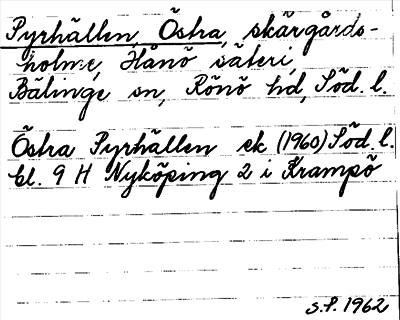 Pyrhällen, Östra, skärgårds-
holme, Hånö säteri,
Bälinge sn, Rönö hd, Söd. l.
Östra Pyrhällen ek (1960) Söd. l.
bl. 9 H Nyköping 2 i Krampö
s.P. 1962